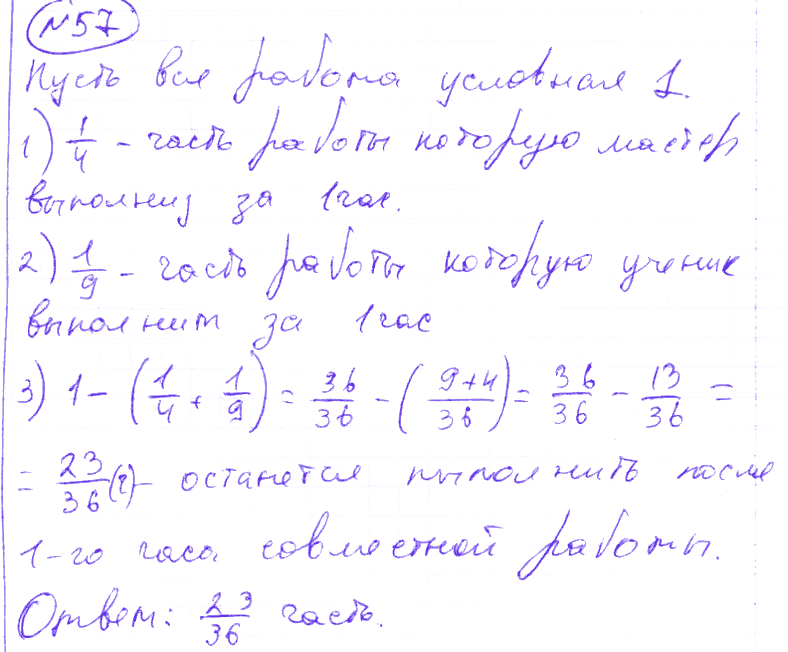 №57
Пусть вся работа условная 1.
1) 1/4 - часть работы которую мастер
выполнит за 1час.
2) 1/9 - часть работы которую ученик
выполнит за 1час
3) 1 - (1/4 + 1/9) = 36/36 - (9+4/36) = 36/36 - 13/36 =
= 23/36 - останется выполнить после
1-го часа совместной работы.
Ответ: 23/36 часть.